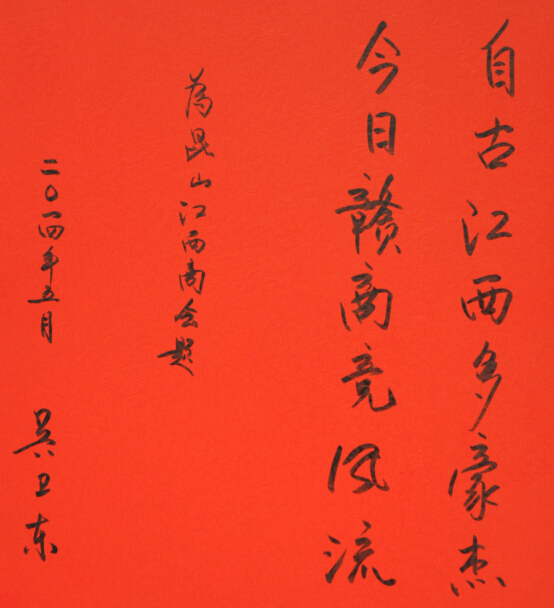 自古江西多豪杰
今日赣商竞风流
为昆山江西商会题
二〇一四年五月
吴卫东